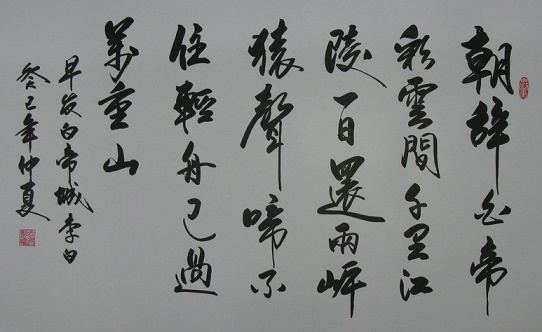 朝辭白帝
彩雲間千里江
陵一日還兩岸
猿聲啼不
住輕舟已過
萬重山
早发白帝城李白
癸巳年仲夏